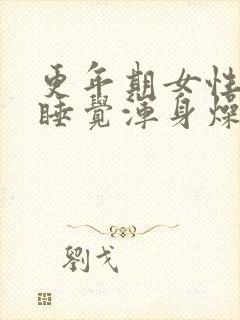 更年期女性
睡覺渾身燥
劉戈